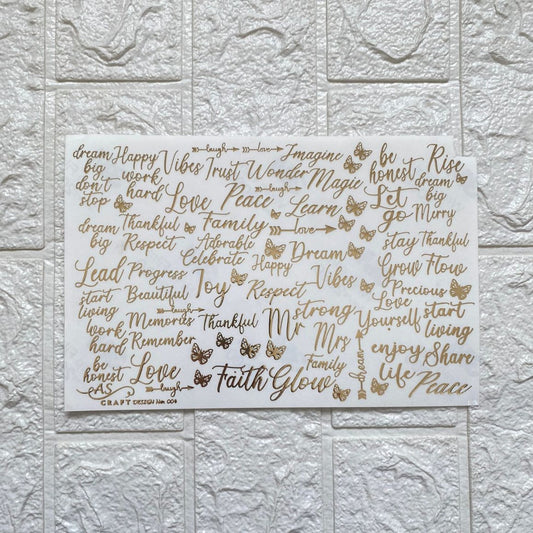 dream big don't stop
Happy
work hard
Vibes
laugh
love
Trust
Wonder
Imagine
Magic
be honest
Rise
dream big
Love
Peace
laugh
Learn
Let go
Merry
dream big
Thankful
Respect
Family
Adorable
Celebrate
love
Happy
Dream
stay
Thankful
Grow
Flow
Lead
Progress
Joy
Respect
Vibes
Precious
Love
start living
Beautiful
laugh
Memories
Remember
Thankful
Mr
strong
Mrs
Yourself
start living
work hard
be honest
Love
laugh
Faith
Glow
Family
dream
enjoy life
Share
Peace
AS
CRAFT DESIGN No. 004